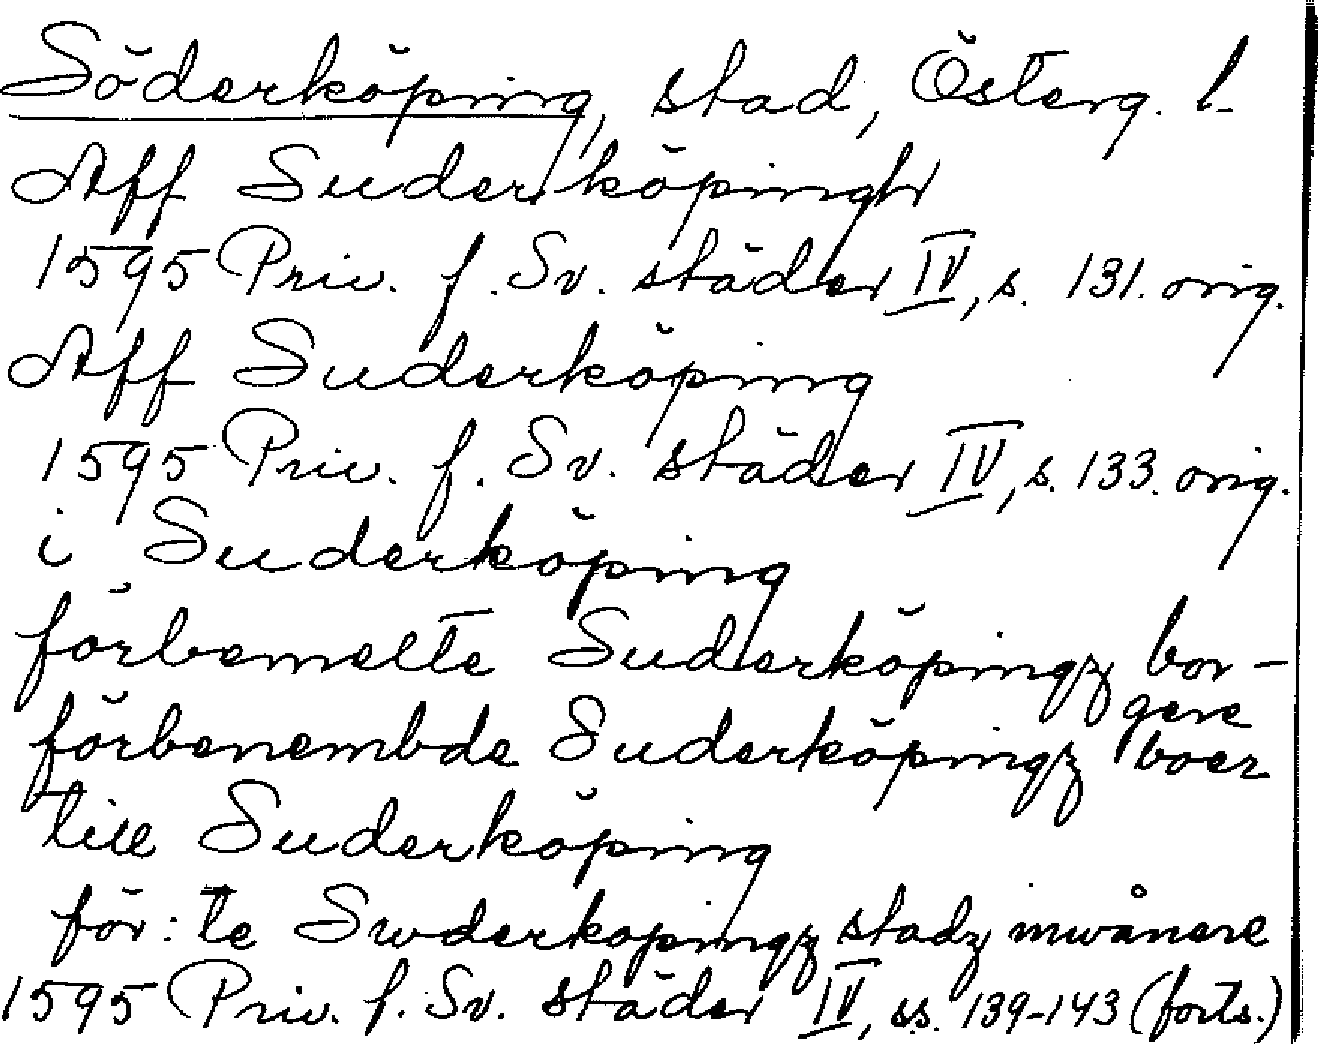 Söderköping, stad, Österg. l.
Aff Suderköpingh
1595 Priv. f. Sv. städer IV, s. 131. orig.
Aff Suderköping
1595 Priv. f. Sv. städer IV, s. 133. orig.
i Suderköping
förbemelte Suderköpingz bor-
gere
förbenembde Suderköpingz boer
till Suderköping
för:te Swderkopingz stadz inwånere
1595 Priv. f. Sv. städer IV, ss. 139-143 (forts.)